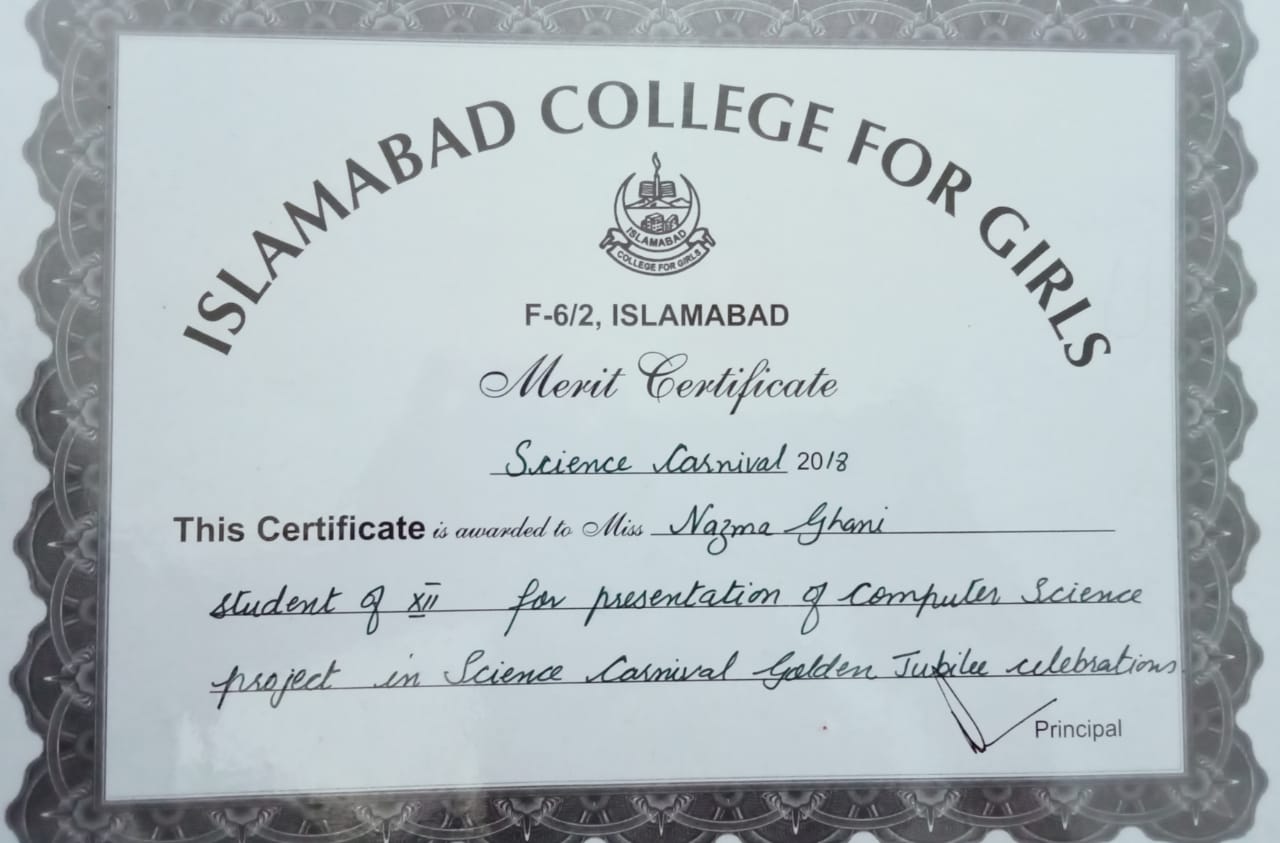 ISLAMABAD COLLEGE FOR GIRLS
ISLAMABAD
COLLEGE FOR GIRLS
F-6/2, ISLAMABAD
Merit Certificate
Science Carnival 2018
This Certificate is awarded to Miss Nazma Ghani
student of XII for presentation of Computer Science
project in Science Carnival Golden Jubilee celebrations
Principal